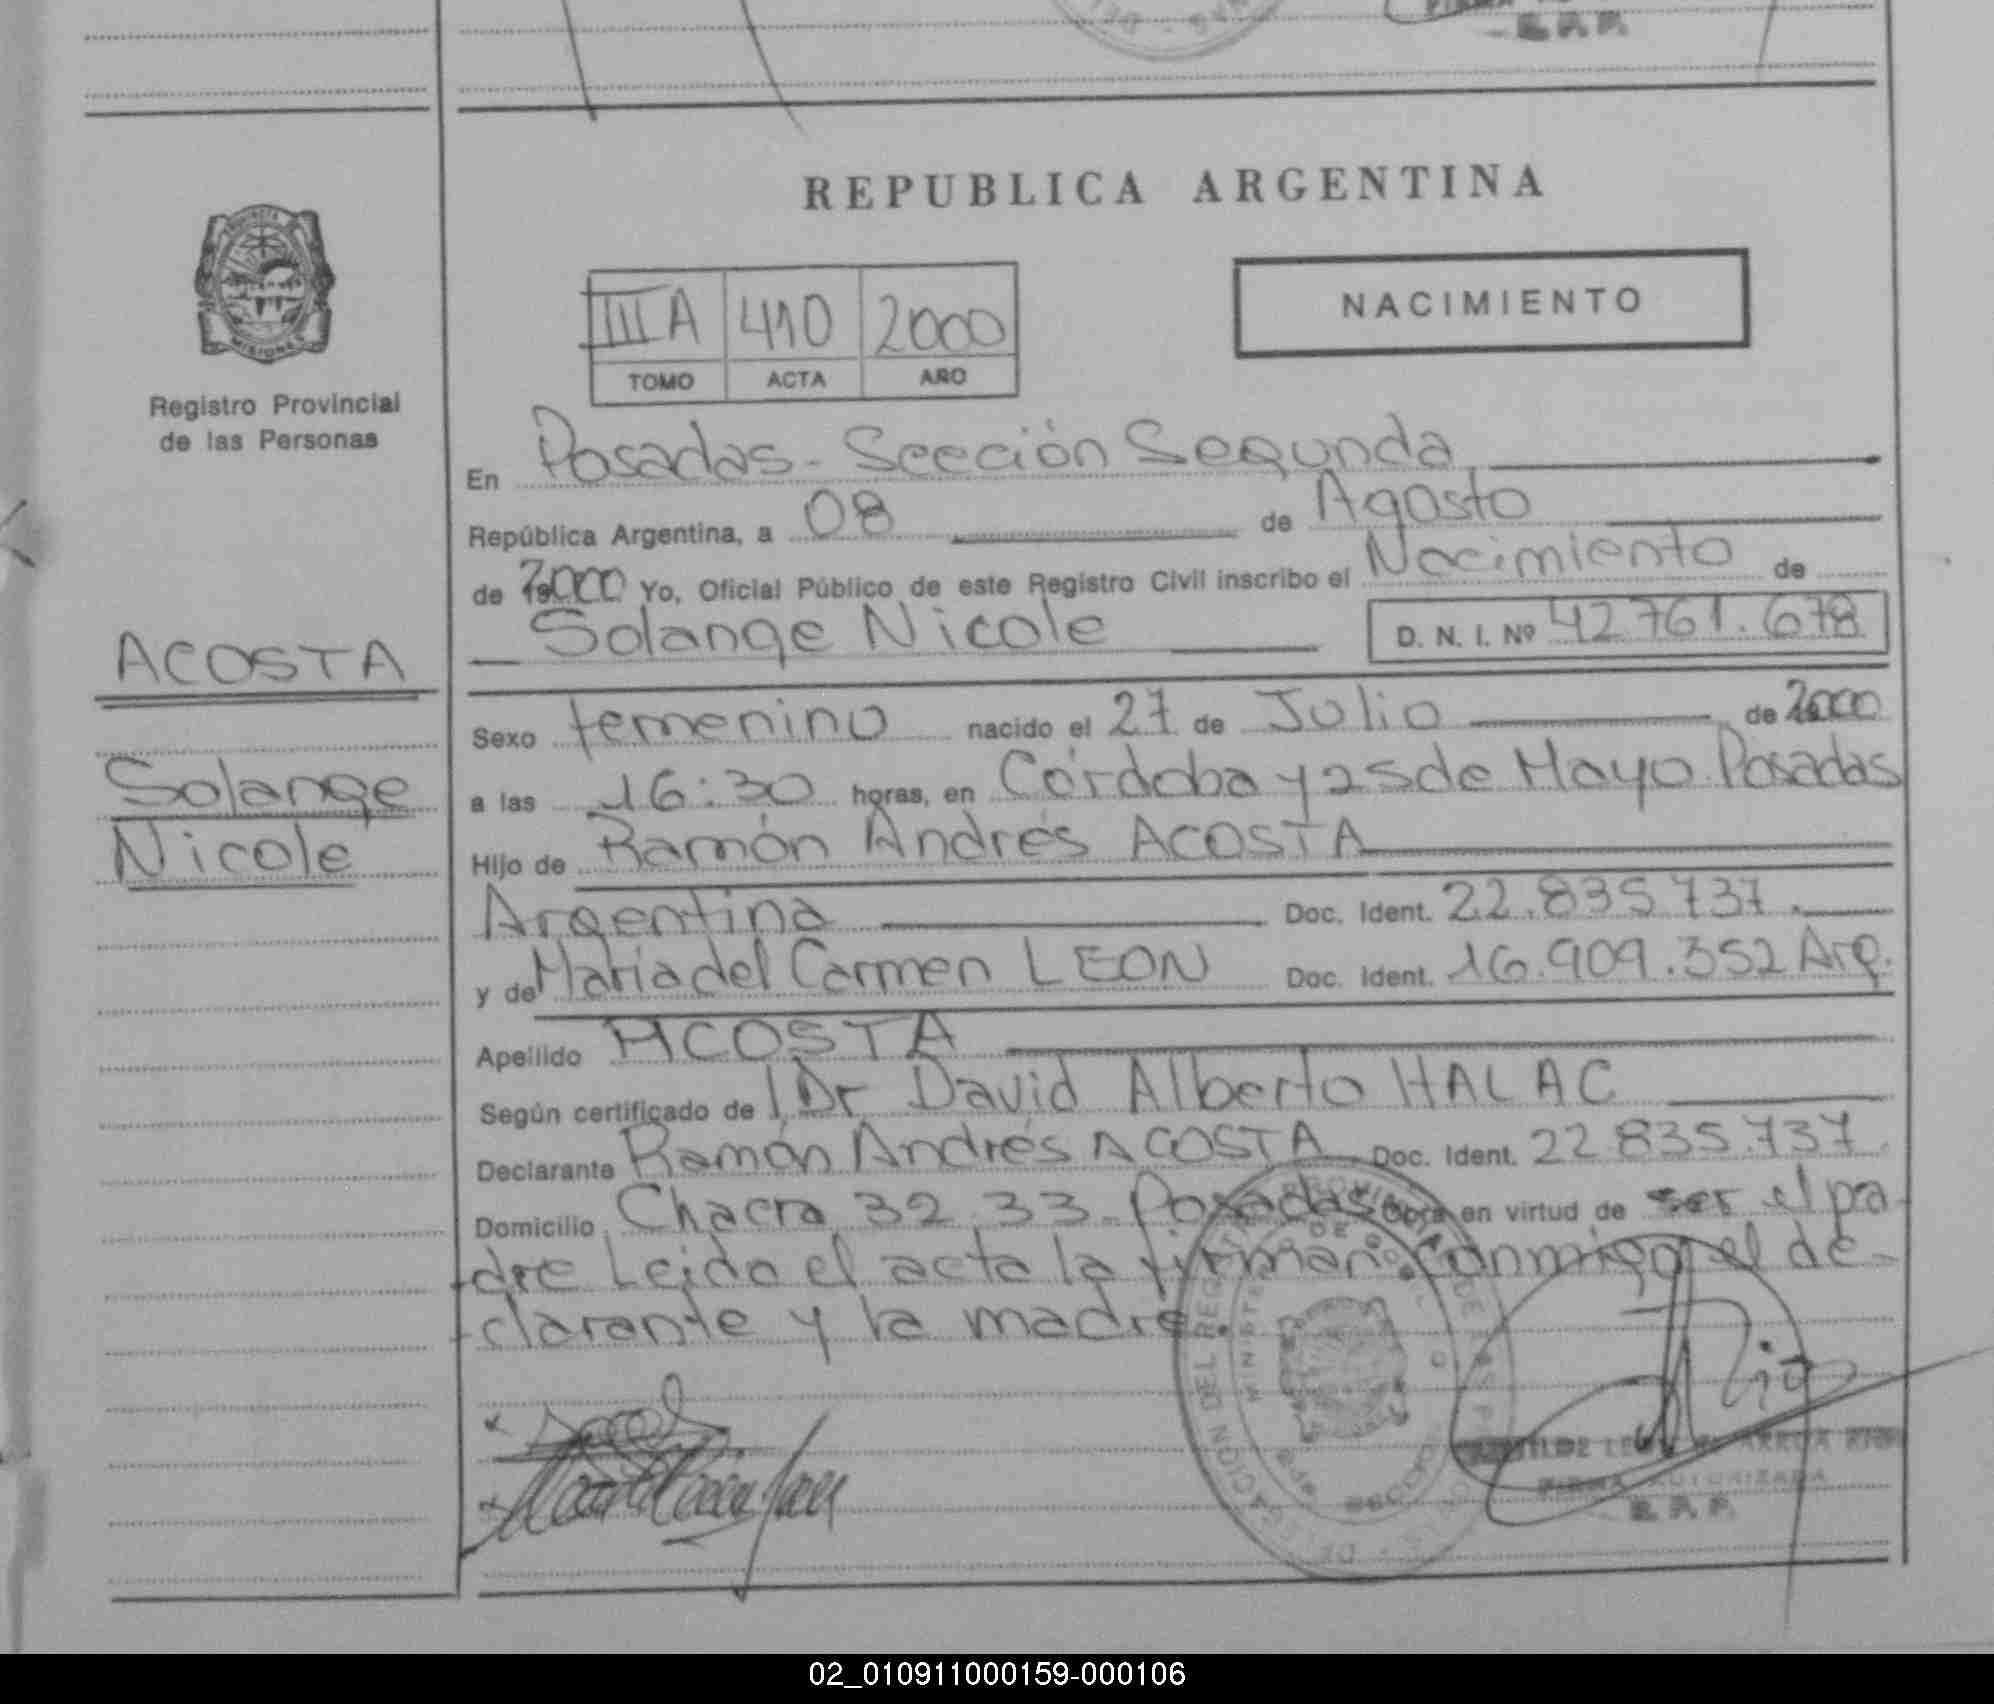 R.P.P.
REPUBLICA ARGENTINA
MISIONES
III A 410 2000
TOMO ACTA AÑO
NACIMIENTO
Registro Provincial
de las Personas
En Posadas - Sección Segunda
República Argentina, a 08 de Agosto
de 2000 Yo, Oficial Público de este Registro Civil inscribo el Nacimiento de
Solange Nicole D. N. I. Nº 42761.678
ACOSTA
Solange
Nicole
Sexo femenino nacido el 27 de Julio de 2000
a las 16:30 horas, en Córdoba y 25 de Mayo Posadas
Hijo de Ramón Andrés ACOSTA
Argentina Doc. Ident. 22.835.737.
y de María del Carmen LEON Doc. Ident. 16.909.352 Arg.
Apellido ACOSTA
Según certificado de Dr David Alberto HALAC
Declarante Ramón Andrés ACOSTA Doc. Ident. 22.835.737.
Domicilio Chacra 32.33 - Posadas Obra en virtud de ser el pa-
dre Leida el acta la firman conmigo el de-
clarante y la madre.
FIRMA AUTORIZADA
R.P.P.
02_010911000159-000106